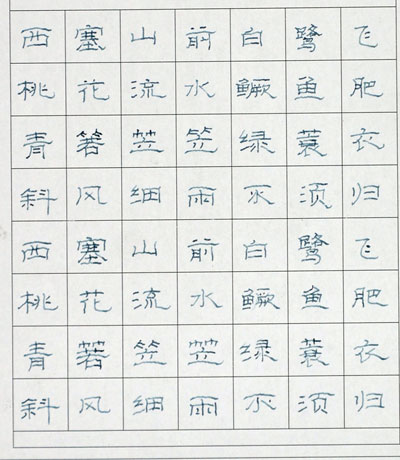 西塞山前白鹭飞
桃花流水鳜鱼肥
青箬笠笠绿蓑衣
斜风细雨不须归
西塞山前白鹭飞
桃花流水鳜鱼肥
青箬笠笠绿蓑衣
斜风细雨不须归